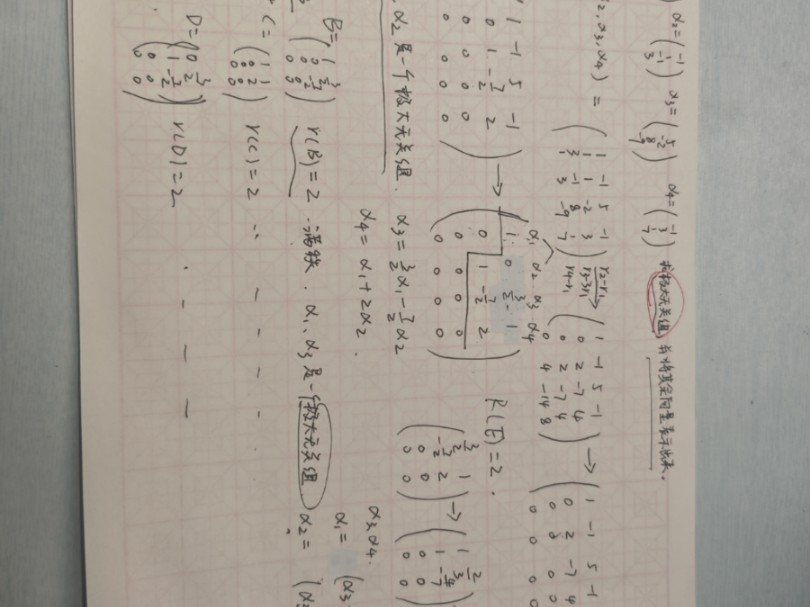 α2=(-1 1 -1 3) α3=(5 -2 8 -9) α4=(-1 3 1 7) 求极大无关组 并将其余向量表示出来.
2,α3,α4) = (1 -1 5 -1 1 1 -2 3 3 -1 8 1 1 3 -9 7) r2-r1 r3-3r1 r4-r1 → (1 -1 5 -1 0 2 -7 4 0 2 -7 4 0 4 -14 8) → (1 -1 5 -1 0 2 -7 4 0 0 0 0 0 0 0
1 -1 5 -1 0 1 -7/2 2 0 0 0 0 0 0 0 0) → (1 0 3/2 1 0 1 -7/2 2 0 0 0 0 0 0 0 0)
α1 α2 α3 α4
α2 是一个极大无关组. α3 = 3/2 α1 - 7/2 α2
α4 = α1 + 2α2.
R( )=2.
B= r(B)=2 ∴满秩. α1、α3 是一个极大无关组 α2 =
C= (1 1 0 2 0 0 0 0) r(C)=2
D= r(D)=2
α3 α4.
α1 = (α3